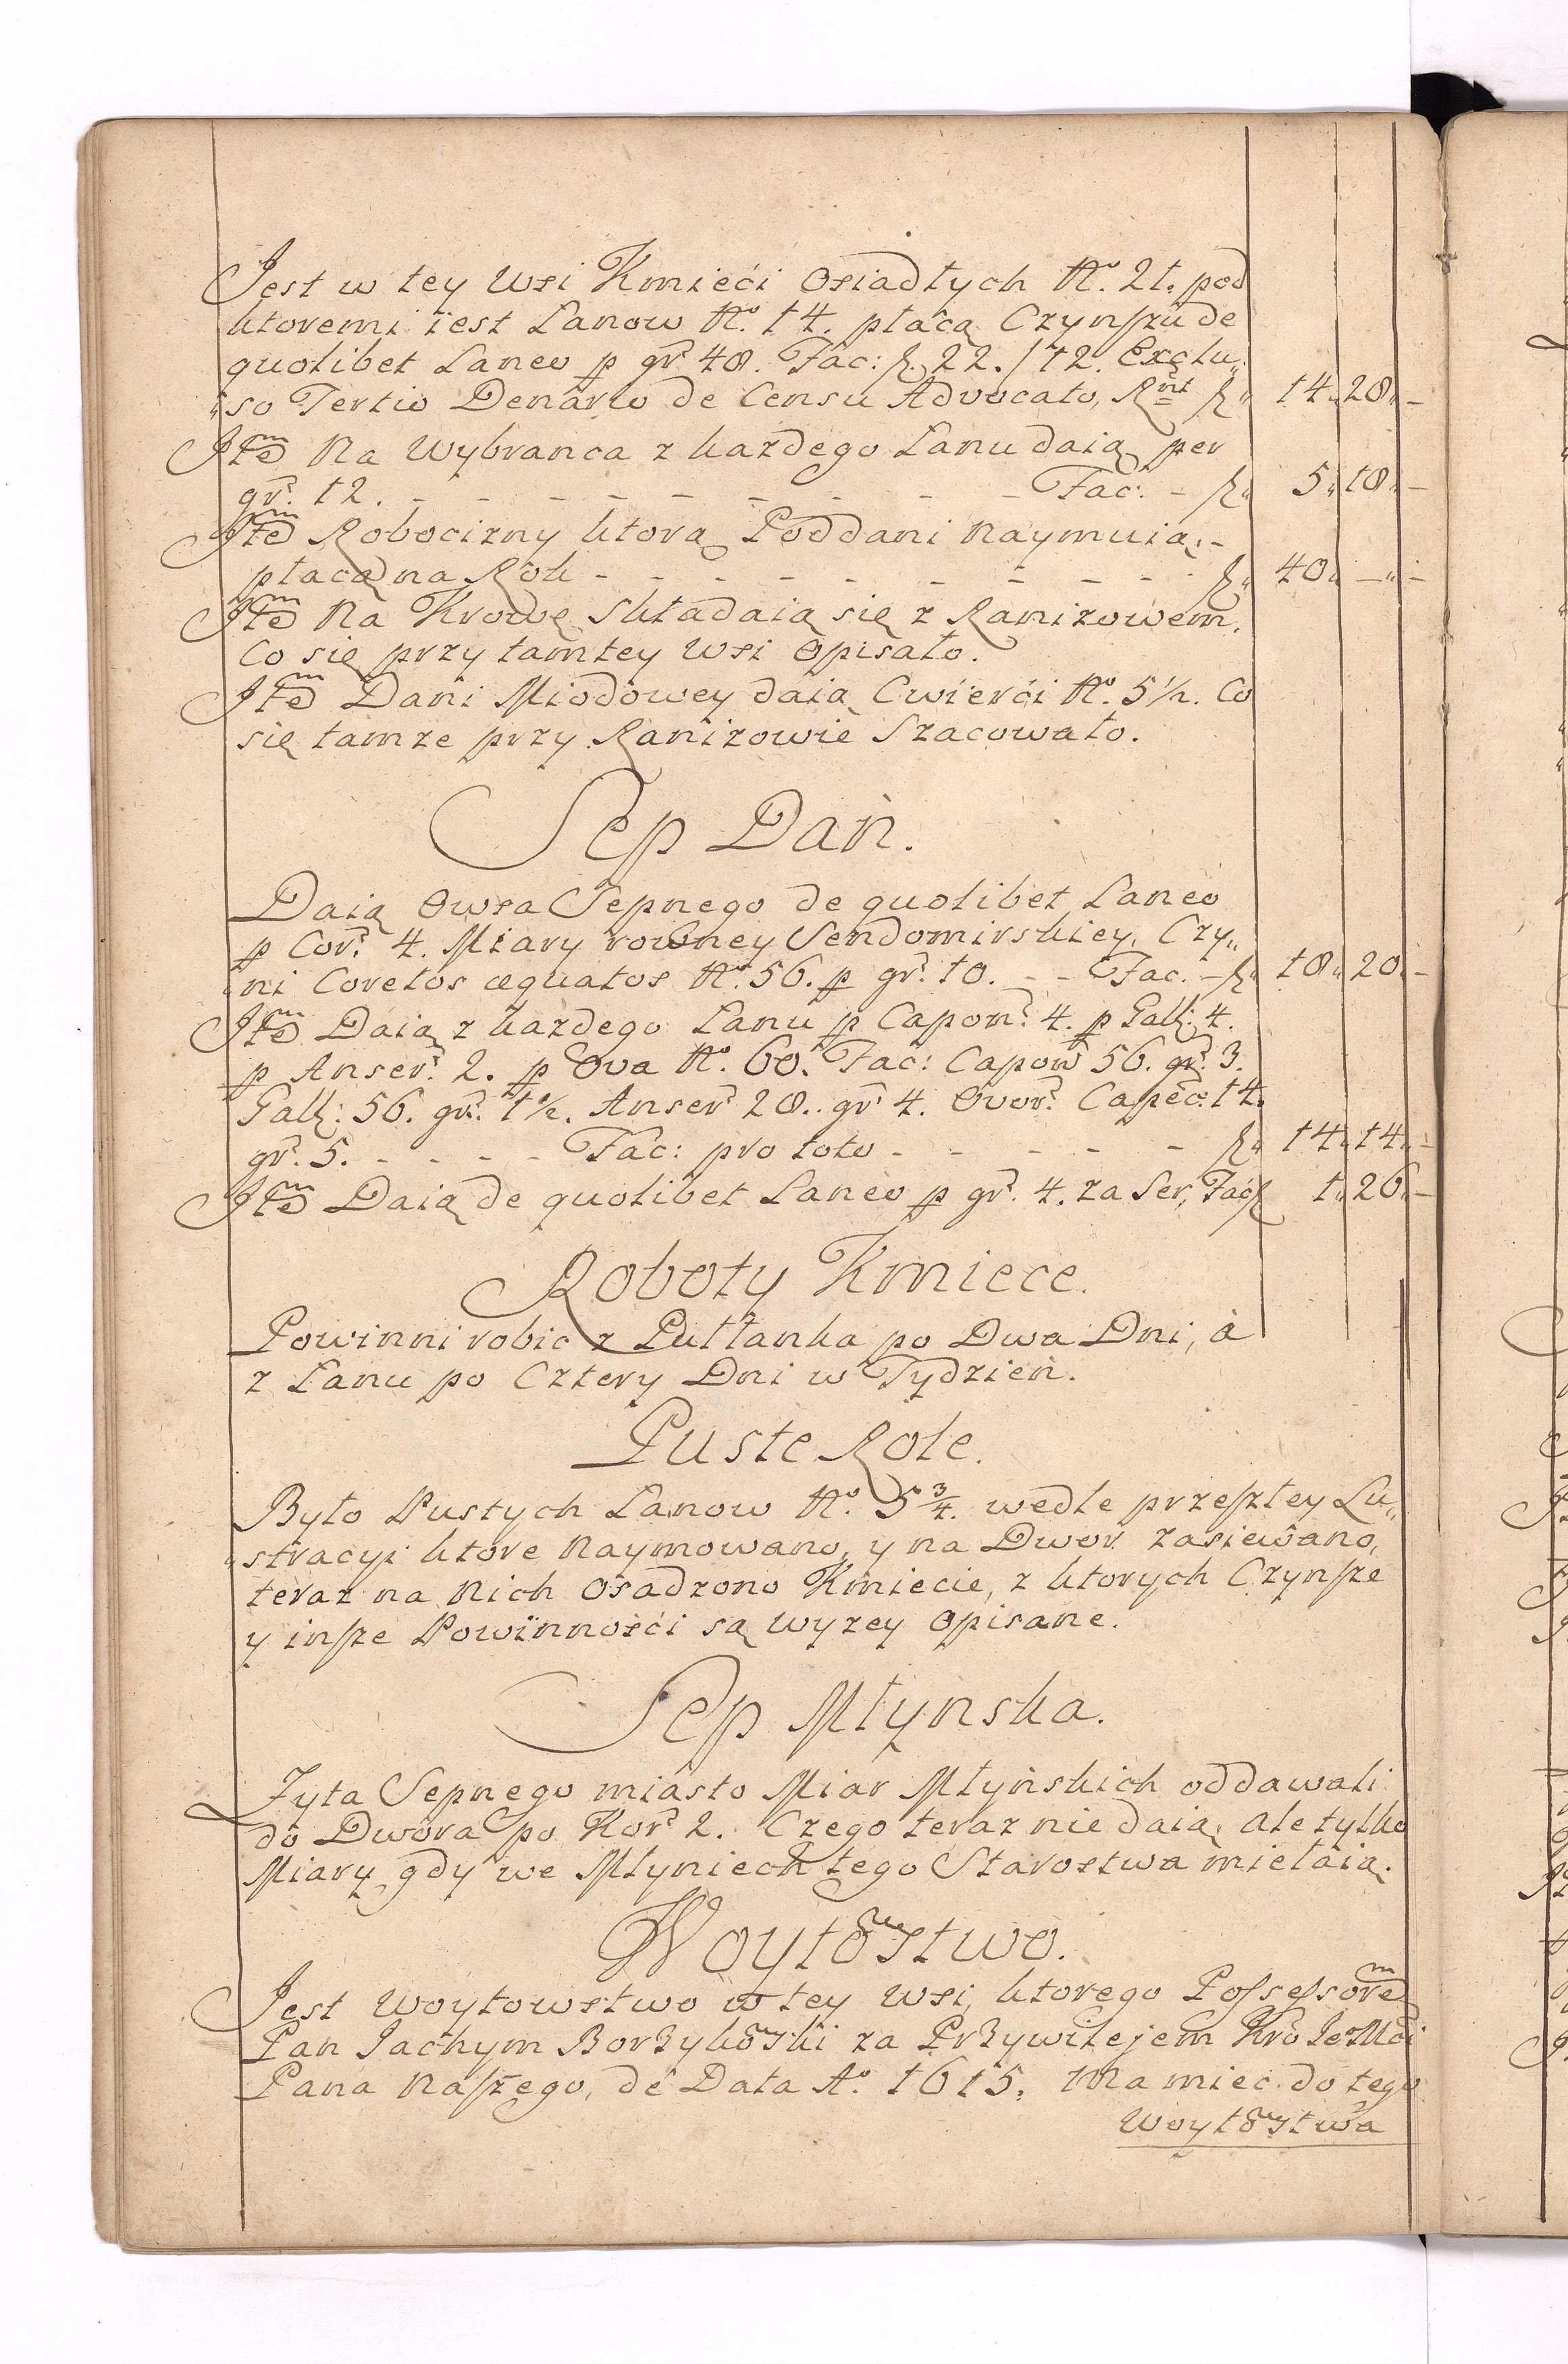 Jest w tey Wsi Kmieći Osiadłych No. 21. pod
ktoremi iest Łanow No. 14. płacą Czynſzu de
quolibet Laneo p gr. 48. Fac: f. 22./12. Exclu„
„so Tertio Denario de Censu Advocato, Rnt f„ 14„ 28„ –
Item Na Wybranca z każdego Łanu daią per
gr. 12. – – – – – – – – – Fac: – f„ 5„ 18„ –
Item Robocizny ktorą Poddani Naymuią, –
płacą na Rok – – – – – – – – – f„ 40„ –„ –
Item Na Krowę Składaią się z Ranizowem,
Co się przy tamtey Wsi Opisało.
Item Dani Miodowey daią Cwierći No. 5½. Co
się tamze przy Ranizowie Szacowało.
Sep Dań.
Daią Owsa Sepnego de quolibet Laneo
p Cor. 4. Miary rowney Sendomirskiey, Czy„
„ni Coretos æquatos No. 56. p gr. 10. – – Fac. – f„ 18„ 20„ –
Item Daią z każdego Łanu p Capon. 4. p Gall. 4.
p Anser. 2. p Ova No. 60. Fac: Capon 56. gr. 3.
Gall: 56. gr. 1½. Anser 28.. gr 4. Ovor. Capec. 14.
gr. 5. – – – – Fac: pro toto – – – – – f„ 14„ 14„ –
Item Daią de quolibet Laneo p gr. 4. za Ser, Fac f 1„ 26„ –
Roboty Kmiece.
Powinni robic z Pułłanka po Dwa Dni, à
z Łanu po Cztery Dni w Tydzień.
Puste Role.
Było Pustych Łanow No. 5¾. wedle przeſzłey Lu„
„stracyi ktore Naymowano, y na Dwor zasiewano,
teraz na Nich Osadzono Kmiecie, z ktorych Czynſze
y inſze Powinnośći są wyzey Opisane.
Sep Młynska.
Zyta Sepnego miasto Miar Młyńskich oddawali
do Dwora po Kor 2. Czego teraz nie daią, ale tylko
Miary gdy we Młyniech tego Starostwa mielaią.
Woytowstwo.
Jest Woytowstwo w tey Wsi, ktorego Poſseſsorem
Pan Jachym Borzykowski za Przywilejem Kro JeMći
Pana Naſzego, de Data Ao. 1615. Ma miec do tego
Woytowstwa